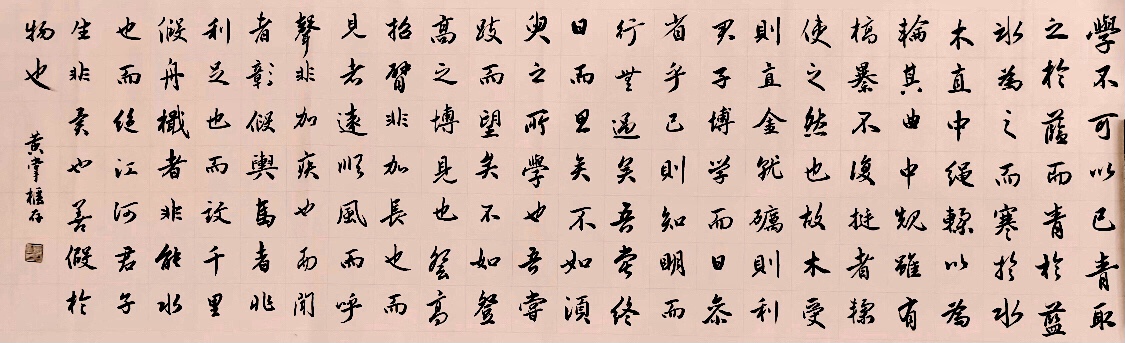 學不可以已青取
之於藍而青於藍
冰為之而寒於水
木直中繩輮以為
輪其曲中規雖有
槁暴不復挺者輮
使之然也故木受
則直金就礪則利
君子博学而日參
省乎己則知明而
行無過矣吾嘗終
日而思矣不如須
臾之所學也吾嘗
跂而望矣不如登
高之博見也登高
招臂非加長也而
見者遠順風而呼
聲非加疾也而聞
者彰假輿馬者非
利足也而致千里
假舟檝者非能水
也而絕江河君子
生非異也善假於
物也
黄